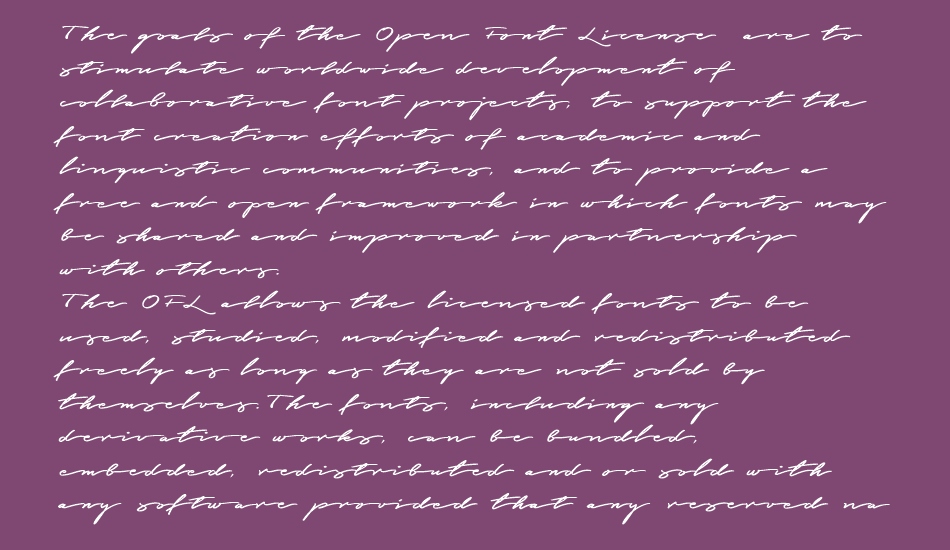 The goals of the Open Font License are to
stimulate worldwide development of
collaborative font projects, to support the
font creation efforts of academic and
linguistic communities, and to provide a
free and open framework in which fonts may
be shared and improved in partnership
with others.
The OFL allows the licensed fonts to be
used, studied, modified and redistributed
freely as long as they are not sold by
themselves.The fonts, including any
derivative works, can be bundled,
embedded, redistributed and or sold with
any software provided that any reserved na